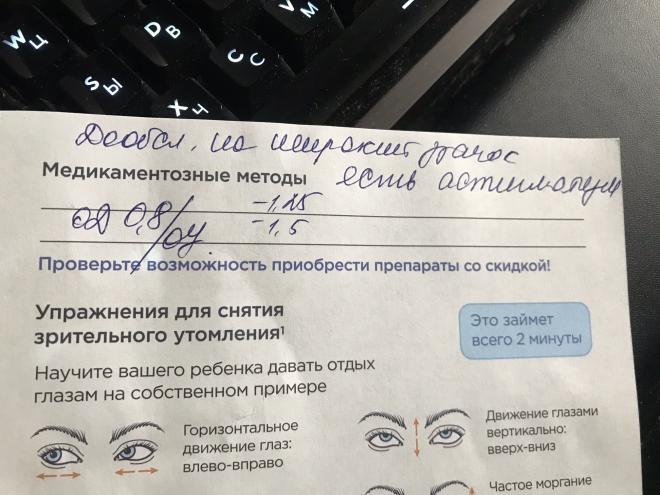 W Ц
D В
C С
V М
S Ы
X Ч
Дообсл. на широкий зрачок
Медикаментозные методы
есть астигматизм
од 0,8/оу -1,25
-1,5
Проверьте возможность приобрести препараты со скидкой!
Упражнения для снятия
зрительного утомления¹
Это займет
всего 2 минуты
Научите вашего ребенка давать отдых
глазам на собственном примере
Горизонтальное
движение глаз:
влево-вправо
Движение глазами
вертикально:
вверх-вниз
Частое моргание